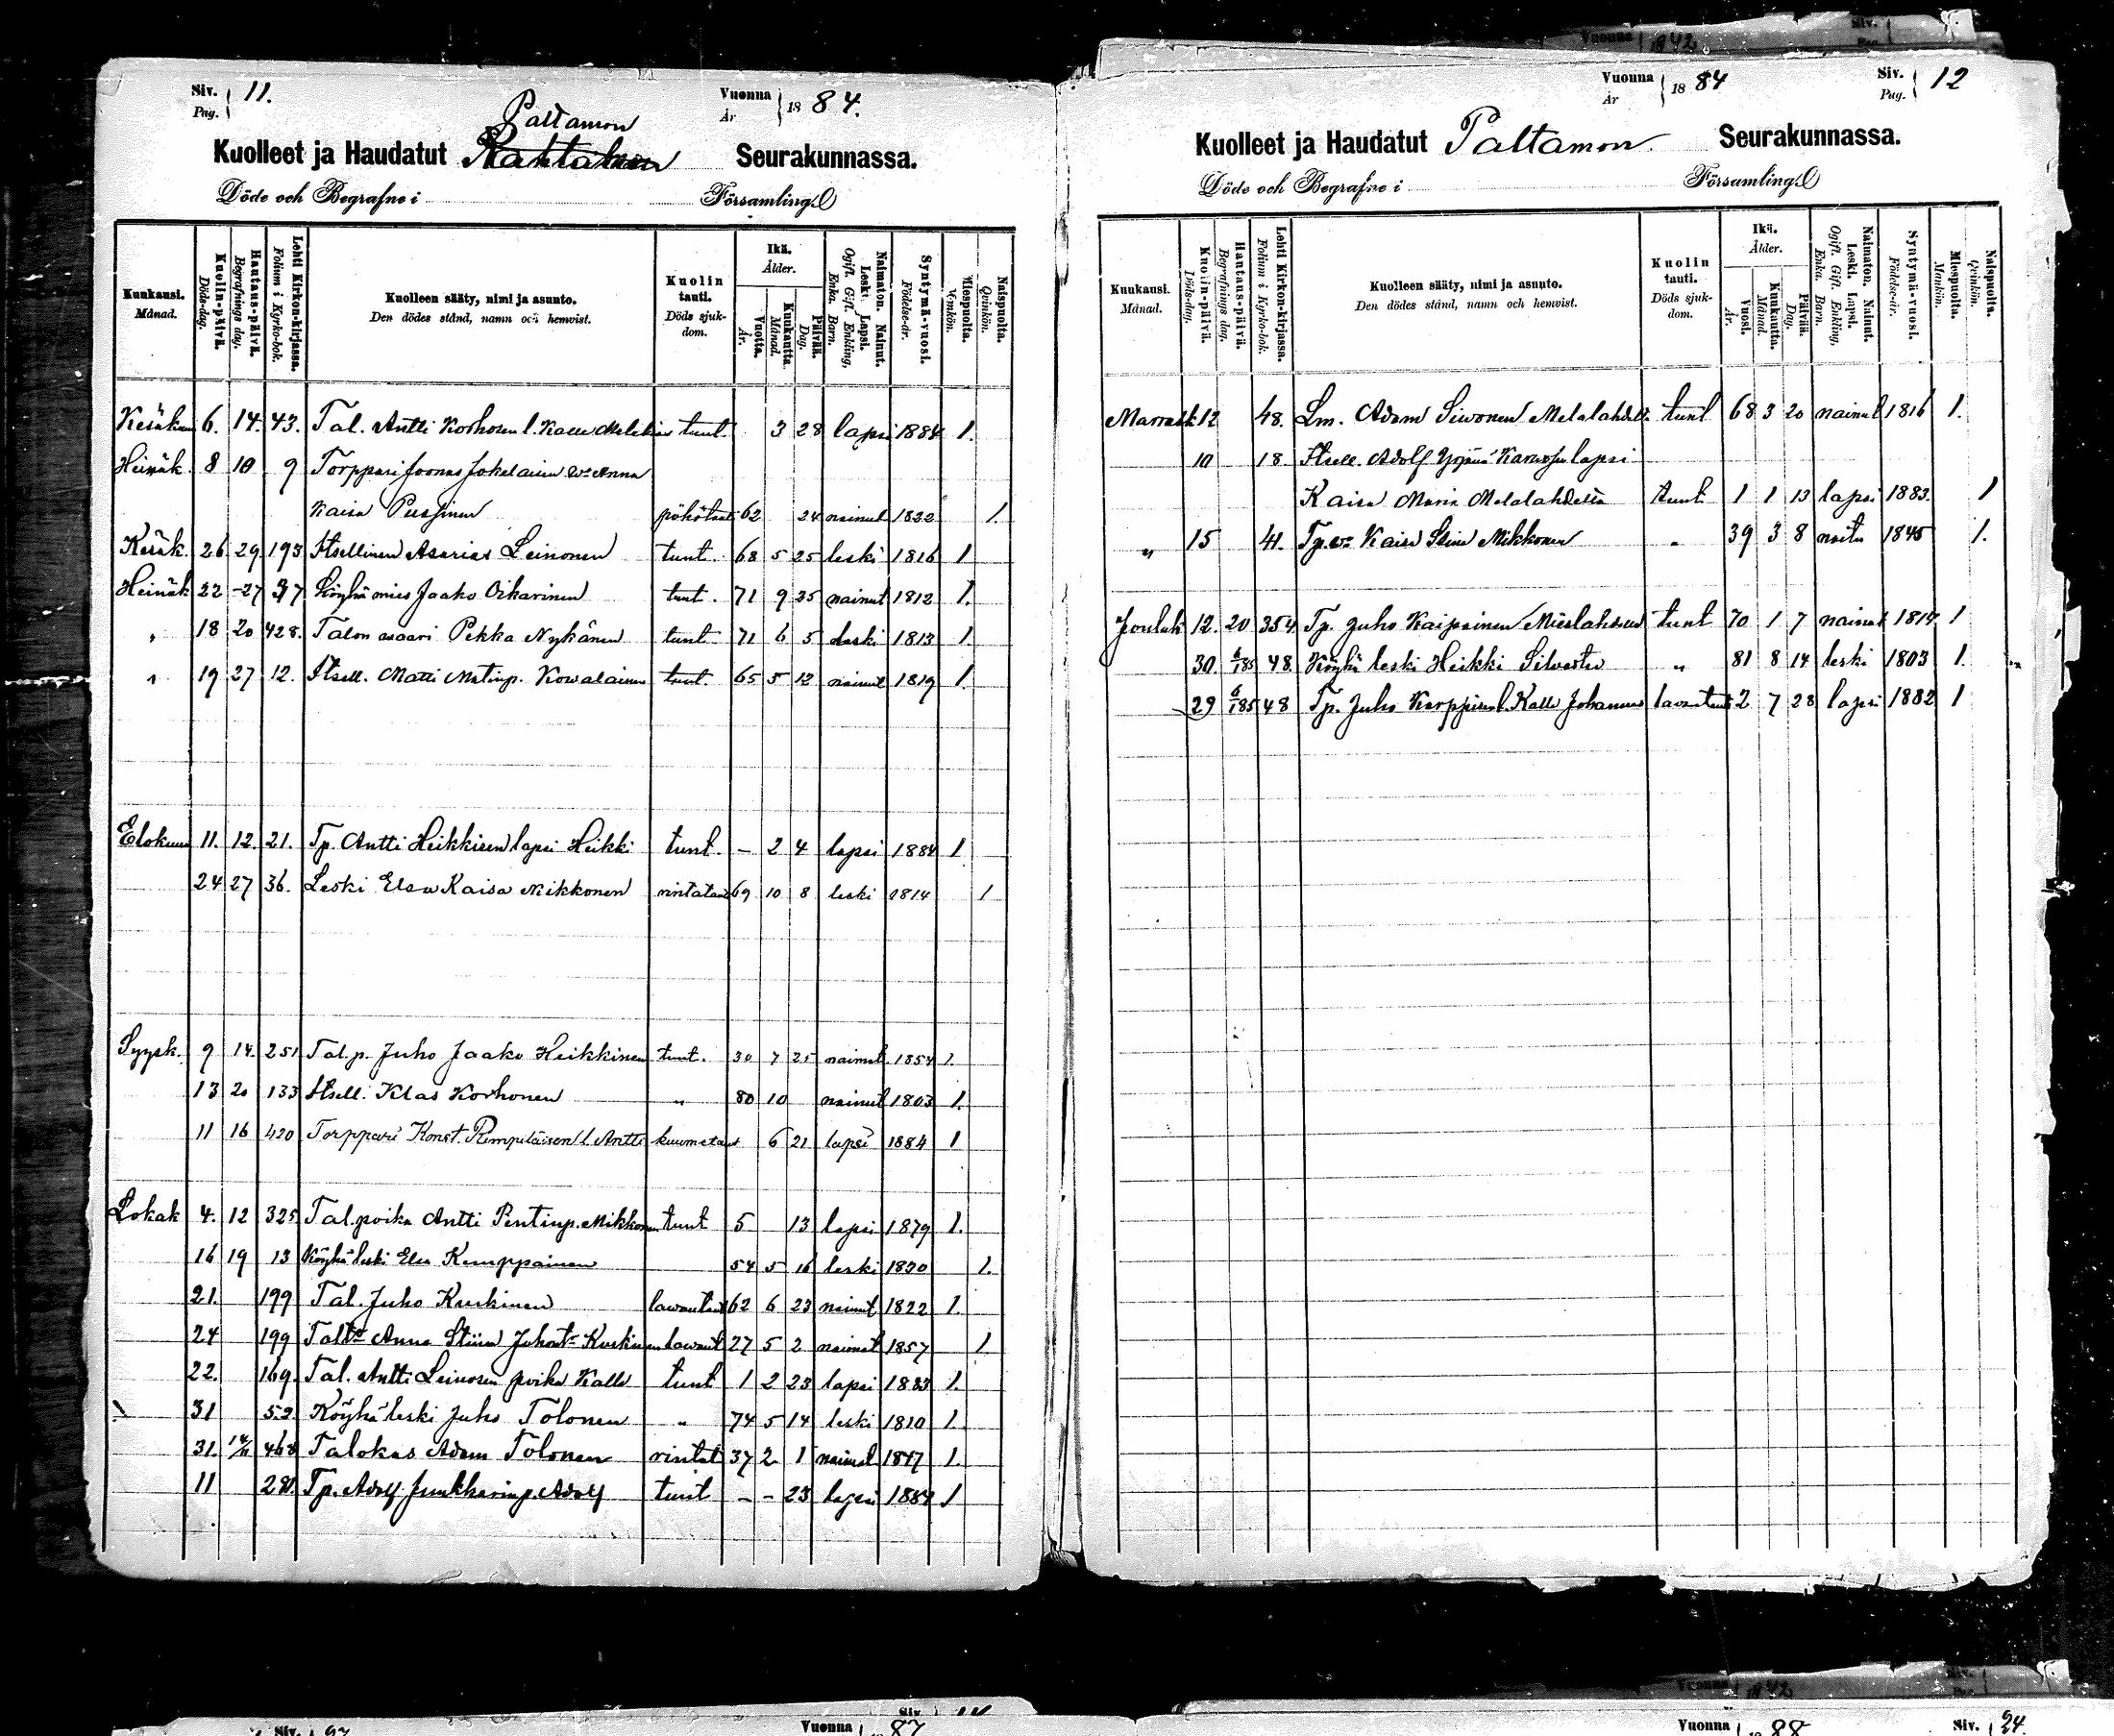 Siv. Pag. 11. Vuonna År 1884.
Paltamon
Kuolleet ja Haudatut Seurakunnassa.
Döde och Begrafne i Församling.
Kuukausi. Månad.
Kuolin-päivä. Döds-dag.
Hautaus-päivä. Begrafnings dag.
Lehti Kirkon-kirjassa. Folium i Kyrko-bok.
Kuolleen sääty, nimi ja asunto. Den dödes stånd, namn och hemvist.
Kuolin tauti. Döds sjuk-dom.
Ikä. Ålder.
Vuotta. År.
Kuukautta. Månad.
Päivää. Dag.
Naimaton. Nainut. Leski. Lapsi. Ogift. Gift. Enkling, Enka. Barn.
Syntymä-vuosi. Födelse-år.
Miespuolta. Mankön.
Naispuolta. Qvinkön.
Kesäkuu 6. 14. 43. Tal. Antti Korhosen l. Kalle tunt. 3 28 lapsi 1884 1.
Heinäk 8 10 9 Torppari Joonas Jokelaisen w:o Anna
Kaisa 62 24 nainut 1822 1.
Kesäk. 26 29 193 Itsellinen Asarias Leinonen tunt. 68 5 25 leski 1816 1
Heinäk 22 -27 Köyhä mies Jaako Oikarinen tunt. 71 9 25 nainut 1812 1.
" 18 20 428. Talon Pekka Nykänen tunt 71 6 5 leski 1813 1.
" 19 27 12. Itsell. Matti Matinp. Kowalainen tunt. 65 5 12 nainut 1819 1.
Elokuu 11. 12. 21. Tp. Antti Heikkisen lapsi Heikki tunt. - 2 4 lapsi 1884 1
24 27 36. Leski Elsa Kaisa Mikkonen rintataut 69 10 8 leski 1814 1
Syysk. 9 14. 251 Tal. p. Juho Jaako Heikkinen tunt. 30 7 25 nainut. 1854 1.
13 20 133 Itsell. Klas Korhonen " 80 10 nainut 1803 1.
11 16 420 Torppari Konst. Rimpiläisen l. Antti kuumetaut 6 21 lapsi 1884 1
Lokak 4. 12 325 Tal. poika Antti Pentinp. Mikkonen tunt 5 13 lapsi 1879 1.
16 19 13 Köyhä leski Elsa Kemppainen 54 5 16 leski 1830 1.
21. 199 Tal. Juho Kurkinen lawantaut 62 6 23 nainut 1822 1.
24 199 Anna Stiina Juhont: Kurkinen lawant 27 5 2 naimat 1857 1
22. 169. Tal. Antti Leinosen poika Kalle tunt 1 2 23 lapsi 1883 1.
31 52. Köyhä leski Juho Tolonen " 74 5 14 leski 1810 1.
31. 14/11 468 Talokas Adam Tolonen rintat 37 2 1 nainut 1847 1.
11 280. Tp. Adolf Junkkarinp. Adolf tunt - - 23 lapsi 1884 1
Vuonna År 1884 Siv. Pag. 12
Kuolleet ja Haudatut Paltamon Seurakunnassa.
Döde och Begrafne i Församling.
Kuukausi. Månad.
Kuolin-päivä. Döds-dag.
Hautaus-päivä. Begrafnings dag.
Lehti Kirkon-kirjassa. Folium i Kyrko-bok.
Kuolleen sääty, nimi ja asunto. Den dödes stånd, namn och hemvist.
Kuolin tauti. Döds sjuk-dom.
Ikä. Ålder.
Vuosi. År.
Kuukautta. Månad.
Päivää. Dag.
Naimaton. Nainut. Leski. Lapsi. Ogift. Gift. Enkling, Enka. Barn.
Syntymä-vuosi. Födelse-år.
Miespuolta. Mankön.
Naispuolta. Qvinkön.
Marrask 12 48. Lm. Adam Siwonen tunt 68 3 20 nainut 1816 1.
10 18. Itsell. Adolf Yrjänä lapsi
Kaisa Maria Melalahdesta tunt. 1 1 13 lapsi 1883. 1
" 15 41. Tp. w:o Kaisa Stiina Mikkonen " 39 3 8 naitu 1845 1.
Jouluk 12. 20 354 Tp. Juho Kaipainen tunt 70 1 7 nainut 1814 1
30 6/1 85 48. Köyhä leski Heikki " 81 8 14 leski 1803 1.
29 6/1 85 48 Tp. Juho Karppisen l. Kalle Johannes 2 7 28 lapsi 1882 1
Vuonna 87
Vuonna 88 Siv. 24.